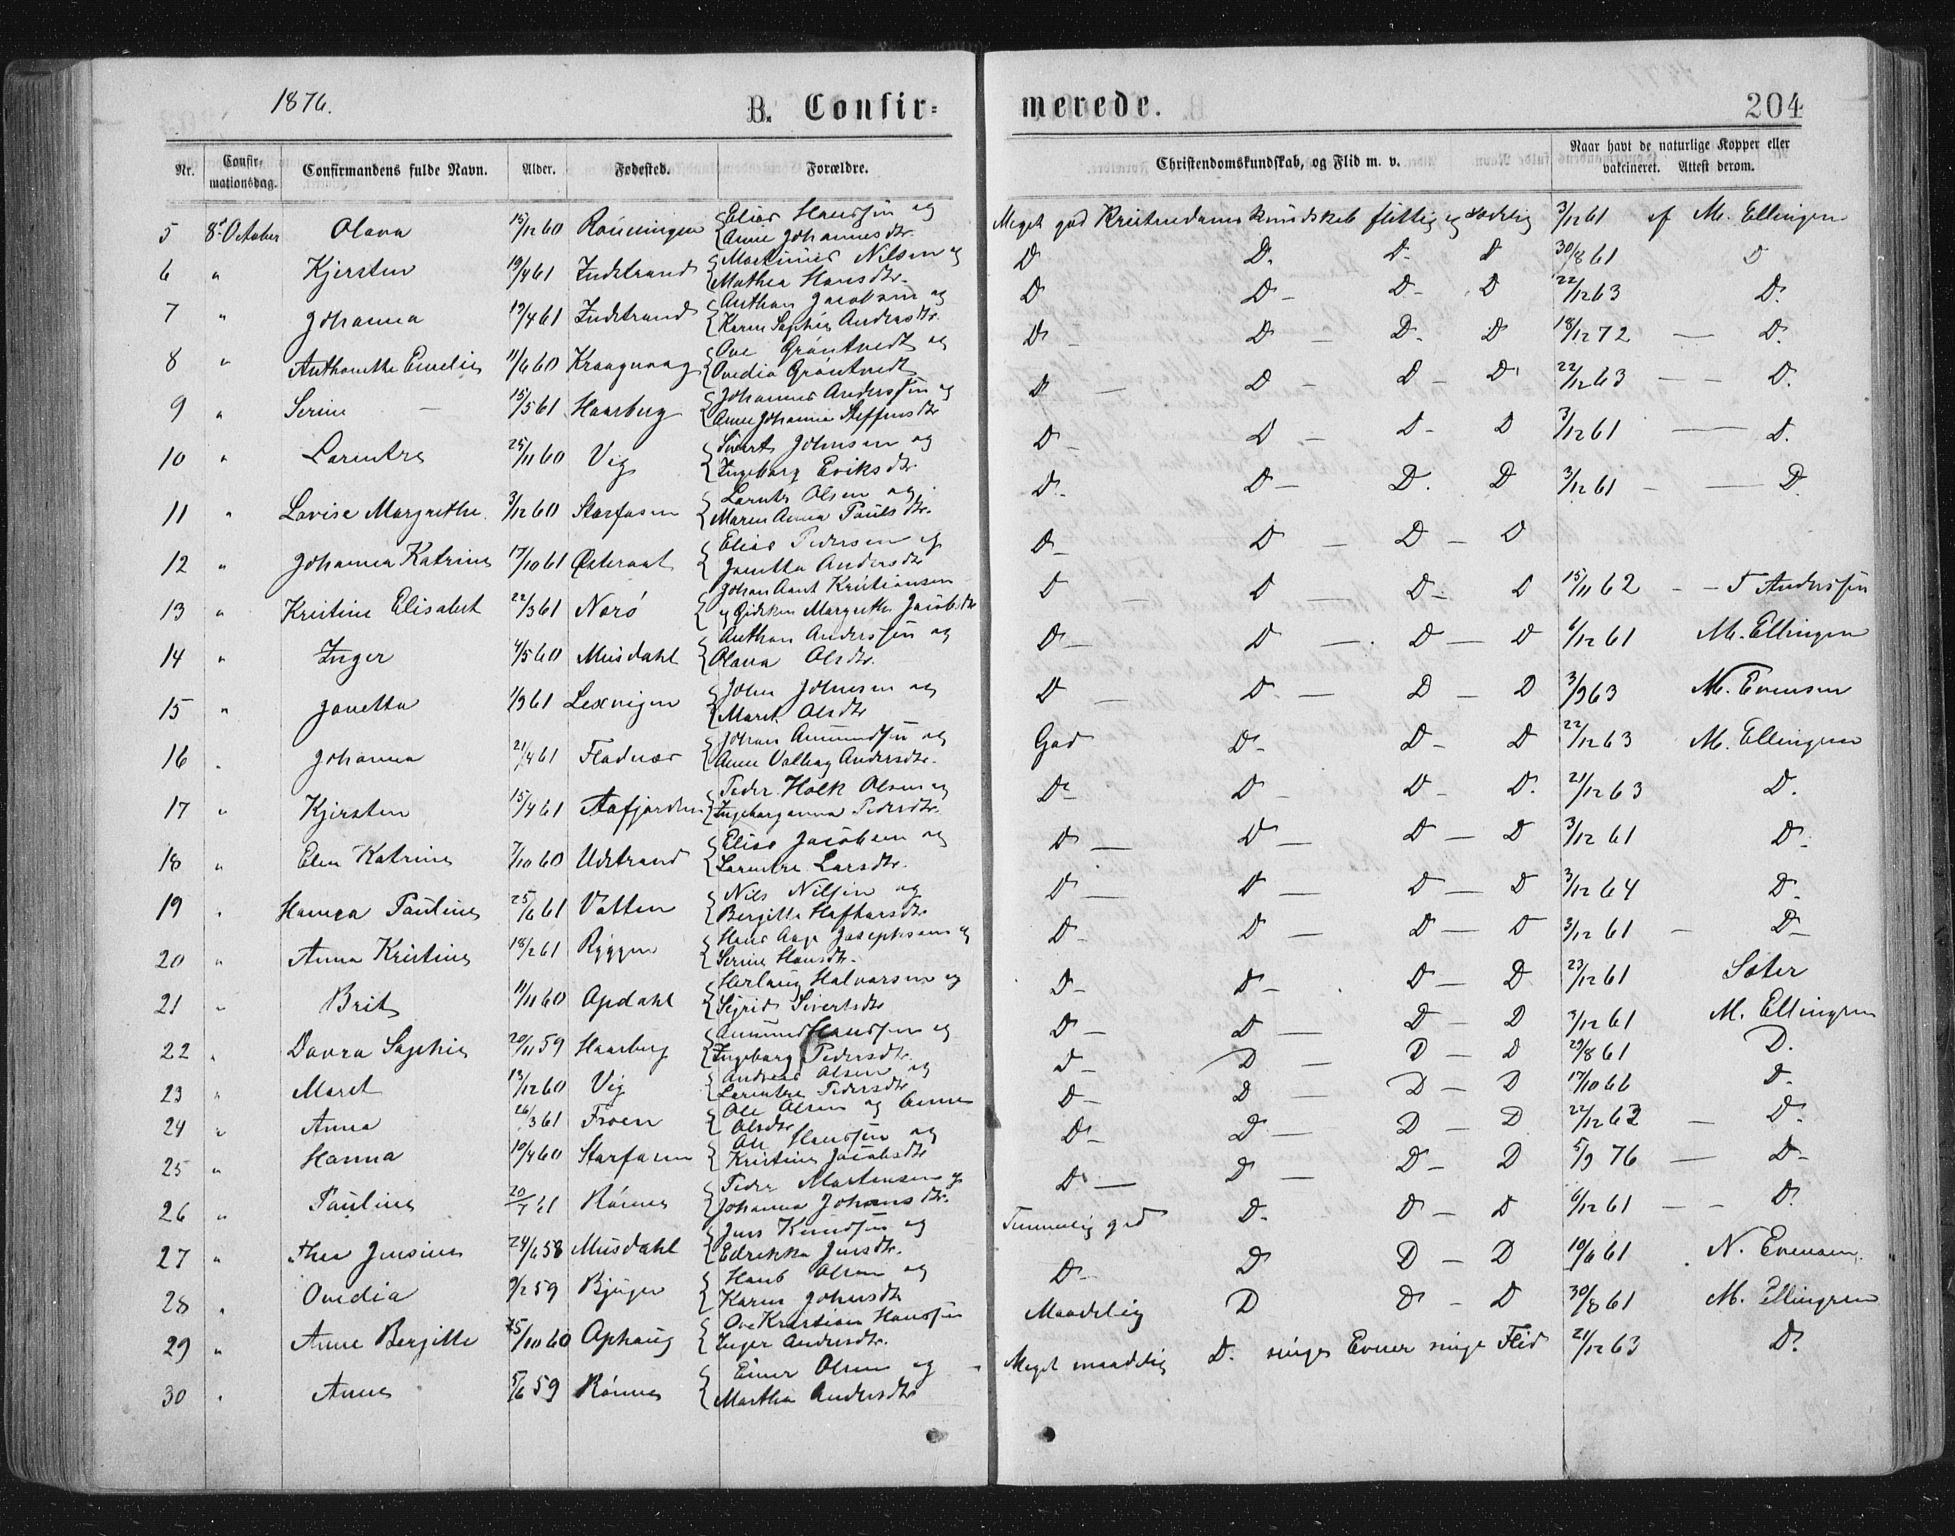 1876.
B. Confirmerede.
204
Nr. Confirmationsdag. Confirmandens fulde Navn. Alder. Fødested. Forældre. Christendomskundskab, og Flid m. v. Naar havt de naturlige Kopper eller vakcineret. Attest derom.
5 8de October Olava 15/12 60 Rønningen Elias Hansen og Anne Johannesdtr. Meget god Kristendomskundskab flittig og sædelig 3/12 61 af M. Ellingsen
6 " Kjersten 19/4 61 Indstrand Martinus Nilsen og Mathea Hansdtr. D D. D. D 30/8 61 D
7 " Johanna 19/4 61 Indstrand Anthon Jacobsen og Karen Sophie Andersdtr. D D - D - D 22/12 63 D.
8 " Anthonette Emelie 11/6 60 Kraagvaag Ove Grøntvedt og Ovedia Grøntvedt D - D - D. D 18/12 72 — D.
9 " Serine - 15/5 61 Haarberg Johannes Anderssen og Anne Johanna Steffensdtr D — D - D - D 22/12 63 - - D.
10 " Larentze 25/11 60 Vig Sivert Johnsen og Ingeborg Eriksdtr. D - D - D - D 3/12 61 — D.
11 " Lovise Margrethe. 3/12 60 Storfosen Larents Olsen og Maren Anna Paulsdtr. D - D - D. D 3/12 61 - — D.
12 " Johanna Katrine 17/10 61 Østeraat Elias Pedersen og Jonetta Andersdtr D - D - D - D
13 " Kristine Elisabet 22/3 61 Norø Johan Arnt Kristiansen og Gjertru Margrethe Jacobsdtr D - D - D - D 15/11 62 - - T Anderssen
14 " Inger 4/5 60 Musdahl Anthon Anderssen og Olava Olsdtr. D - D - D - D 6/12 61 M. Ellingsen
15 " Jonetta 1/9 61 Lexvigen John Johnsen og Maret Olsdtr D - D - D - D 3/9 63 N. Evensen
16 " Johanna 21/4 61 Fladnær Johan Amundsen og Anne Valborg Andersdtr. God D - D - D 22/12 63 M. Ellingsen
17 " Kjersten 15/4 61 Aafjorden Peder Holk Olsen og Ingeborganna Pedersdtr. D - D - D - D. 21/12 63 D.
18 " Elen Katrine 7/10 60 Udstrand Elias Jacobsen og Larentze Larsdtr. D - D - D - D 3/12 61 D.
19 " Hanna Pauline 25/6 61 Vatten Nils Nilsen og Bergitta Haftorsdtr D - D - D - D 3/12 64 D.
20 " Anna Kristine 18/2 61 Ryggen Hans Aage Josephsen og Serine Hansdtr. D - D - D - D 3/12 61 - D -
21 " Brit 11/11 60 Opdahl Herlaug Halvorsen og Sigrid Sivertsdtr D - D - D - D 23/12 61 Sæter
22 " Davra Sophie 20/11 59 Haarberg Amund Hanssen og Ingeborg Pedersdtr. D - D - D - D 3/12 61 M. Ellingsen
23 " Maret 13/12 60 Vig Andreas Olsen og Larentze Pedersdtr D - D - D - D 29/8 61 D.
24 " Anna 26/3 61 Froen Ole Olsen og Anne Olsdtr D - D - D - D 17/10 66 D -
25 " Hanna 10/4 60 Storfosen Ole Hanssen og Kristine Jacobsdtr D - D - D - D 22/12 62 - D -
26 " Pauline 20/1 61 Rønne Peder Martensen og Johanna Johansdtr. D - D - D - D 5/9 76 — D -
27 " Thea Jensine 24/6 58 Musdahl Jens Knudsen og Edrikka Jensdtr. Temmelig god D. D - D 6/12 61 - - D.
28 " Ovedia 9/2 59 Bjugn Hans Olsen og Karen Johnsdtr D - D D - D 10/6 61 N. Evensen.
29 " Anne Bergitte 25/10 60 Ophaug Ove Kristian Hanssen Inger Andersdtr. Maadelig D D - D 30/8 61 M. Ellingsen
30 " Anne 5/6 59 Rønne Einer Olsen og Martha Andersdtr Meget maadelig D. ringe Evner ringe Flid 21/12 63 D.